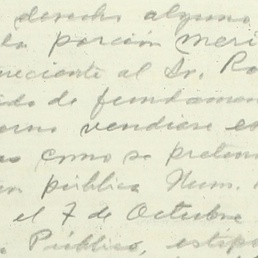 derecho alguno
la porción meri
reciente al Sr. Ro
ido de fundamen
vendiese es
como se preten
en pública Num.
el 7 de Octubre
Público, estip